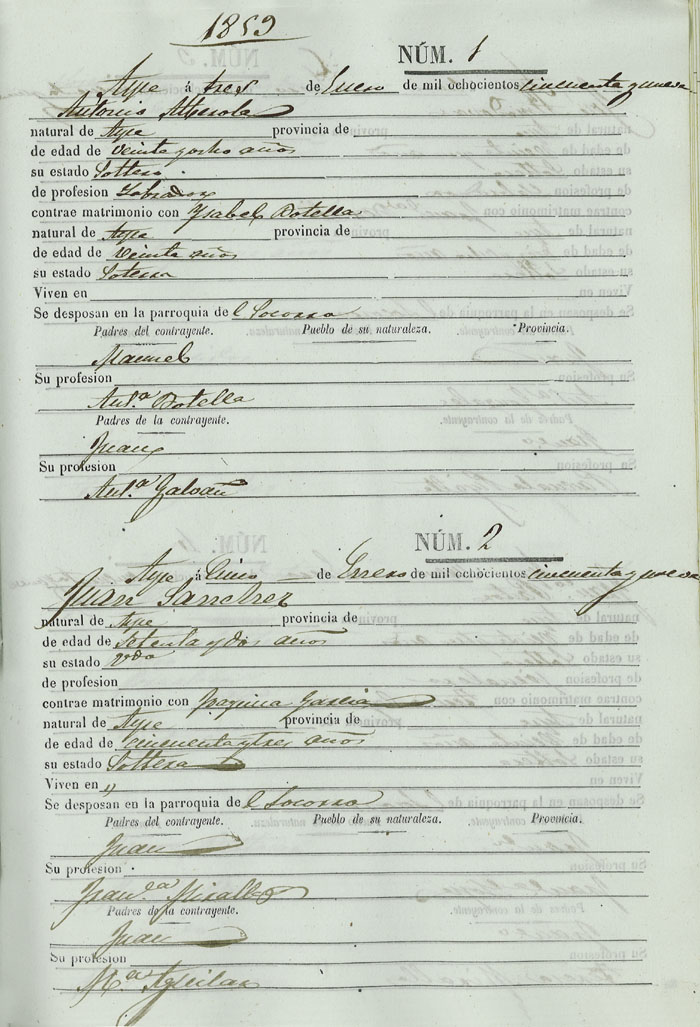 1859
NÚM. 1
Aspe á tres de Enero de mil ochocientos cincuenta y nueve
Antonio Alberola
natural de Aspe provincia de
de edad de veinte y ocho años
su estado Soltero
de profesion Labrador
contrae matrimonio con Ysabel Botella
natural de Aspe provincia de
de edad de veinte años
su estado Soltera
Viven en
Se desposan en la parroquia del Socorro
Padres del contrayente. Pueblo de su naturaleza. Provincia.
Manuel
Su profesion
Ant.ª Botella
Padres de la contrayente.
Juan
Su profesion
Ant.ª Galvañ
NÚM. 2
Aspe á Cinco de Enero de mil ochocientos cincuenta y nueve
Juan Sanchez
natural de Aspe provincia de
de edad de Setenta y dos años
su estado V.do
de profesion
contrae matrimonio con Joaquina Garcia
natural de Aspe provincia de
de edad de cincuenta y tres años
su estado Soltera
Viven en "
Se desposan en la parroquia del Socorro
Padres del contrayente. Pueblo de su naturaleza. Provincia.
Juan
Su profesion
Fran.ca Miralles
Padres de la contrayente.
Juan
Su profesion
M.ª Aguilar